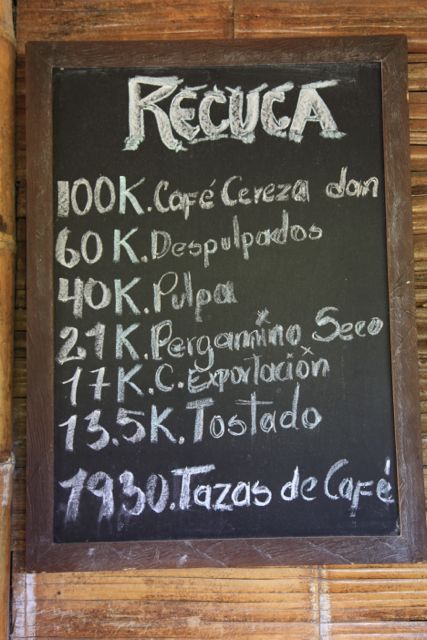 RECUCA
100K. Café Cereza dan
60 K. Despulpados
40K. Pulpa
21K. Pergamino Seco
17K. C. Exportación
13.5K. Tostado
1930. Tazas de Café